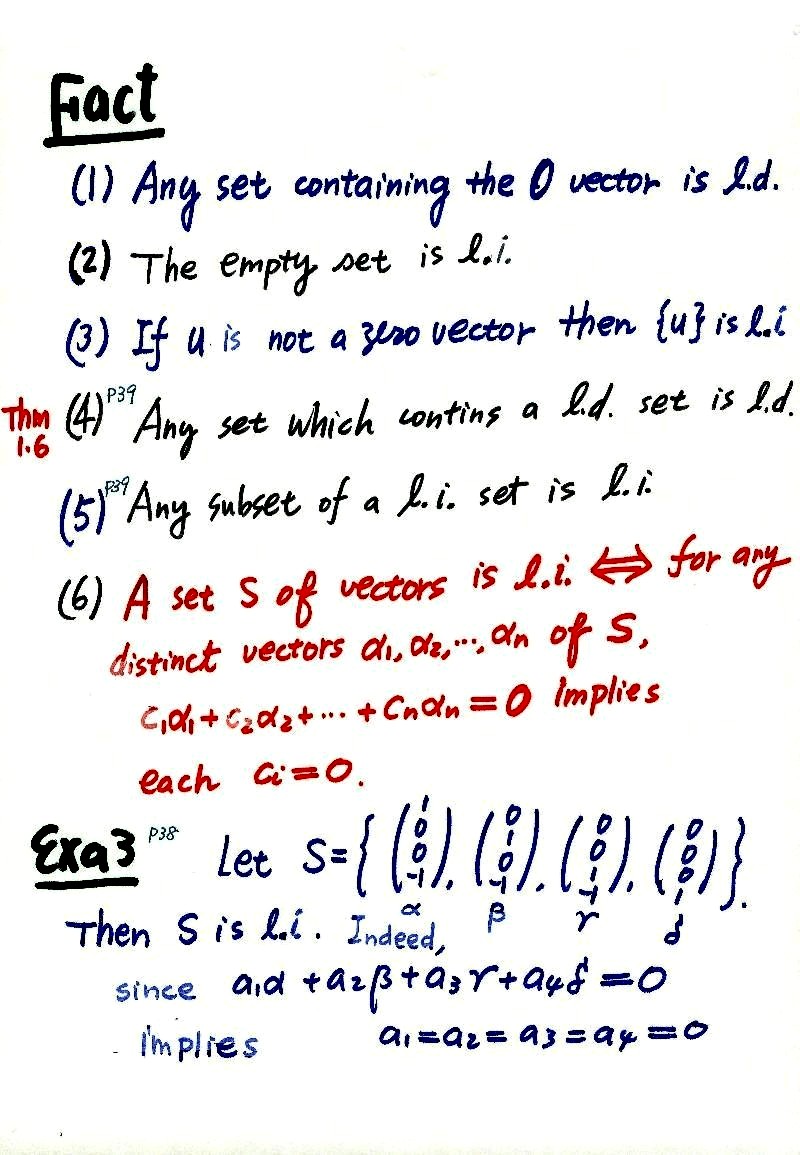 Fact
(1) Any set containing the 0 vector is l.d.
(2) The empty set is l.i.
(3) If u is not a zero vector then {u} is l.i
Thm 1.6 (4) P39 Any set which contins a l.d. set is l.d.
(5) P39 Any subset of a l.i. set is l.i.
(6) A set S of vectors is l.i. ⟺ for any
distinct vectors α1, α2, ..., αn of S,
c1α1 + c2α2 + ... + cnαn = 0 implies
each ci = 0.
Exa3 P38 Let S = { (1 0 0 -1), (0 1 0 -1), (0 0 1 -1), (0 0 0 1) }.
α β γ δ
Then S is l.i. Indeed,
since a1α + a2β + a3γ + a4δ = 0
implies a1 = a2 = a3 = a4 = 0